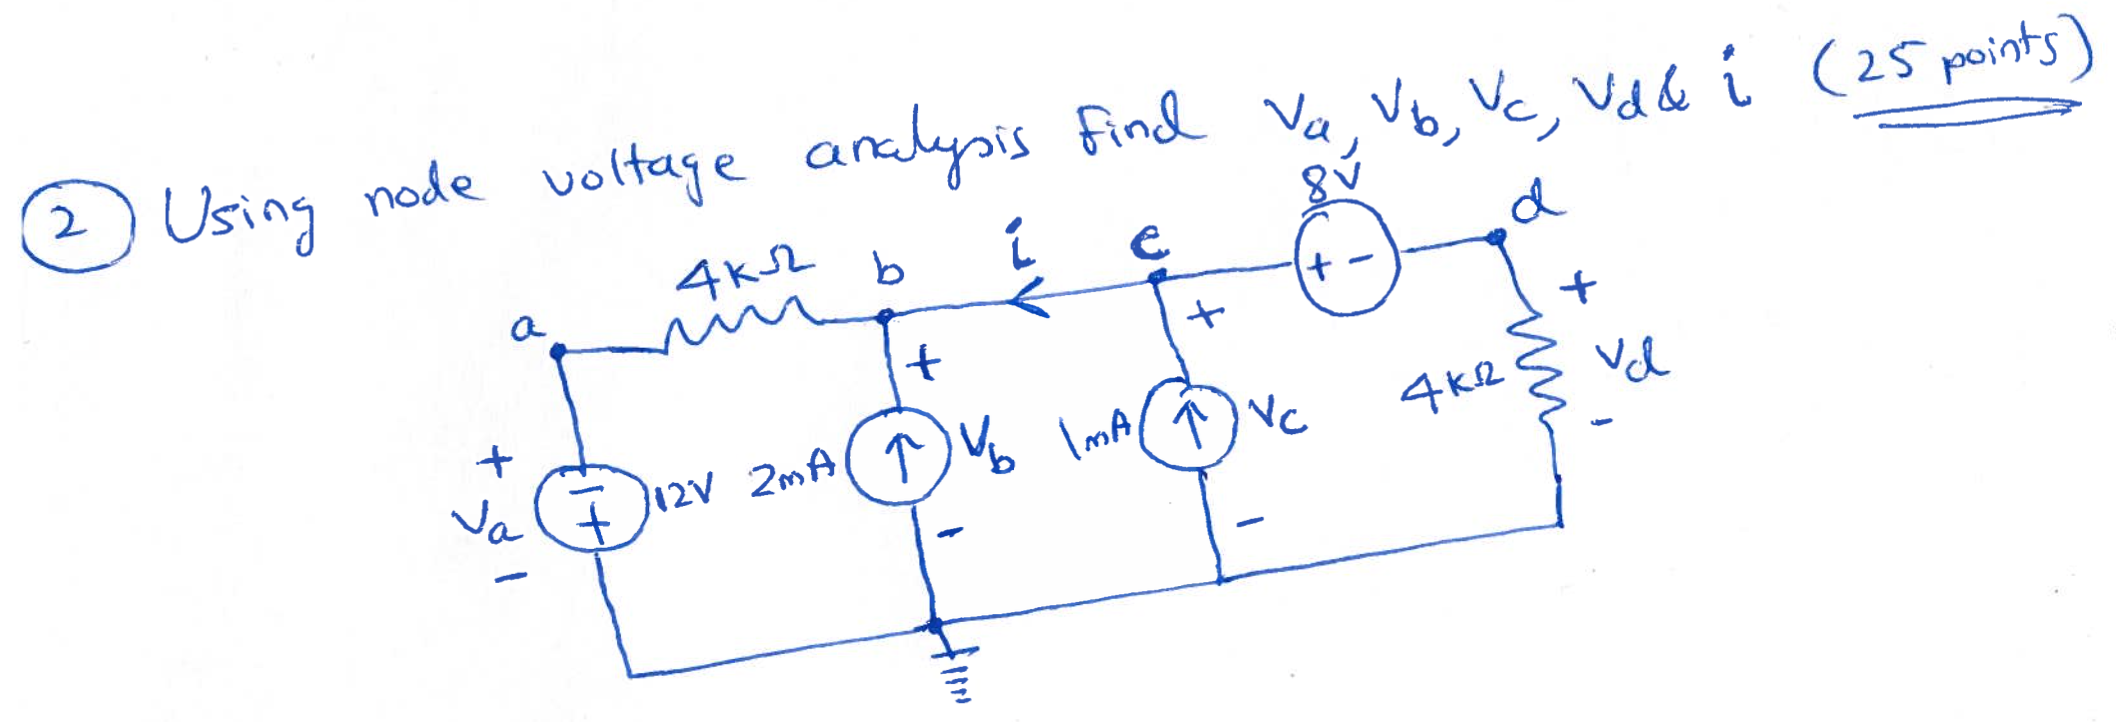 2 Using node voltage analysis find Va, Vb, Vc, Vd & i (25 points)
8V
d
i
c
4kΩ
b
a
+ -
+
+
+
Vd
4kΩ
-
+
Va
-
- +
12V
2mA
Vb
1mA
Vc
-
-